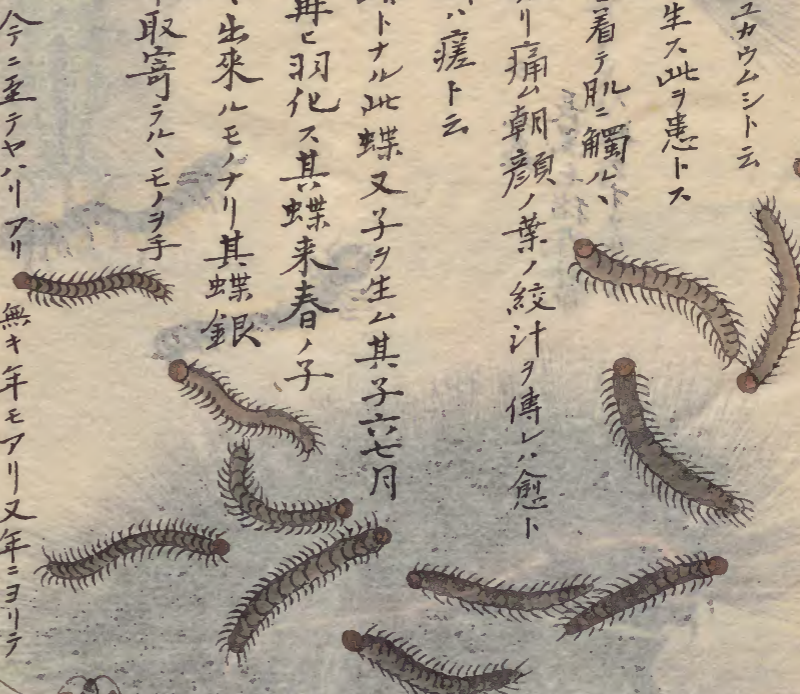 ユカウムシト云
生ス此ヲ患トス
着テ肌ニ觸ルヽ
リ痛ム朝顔ノ葉ノ絞汁ヲ傳レハ愈ト
ハ瘥ト云
トナル此蝶又子ヲ生ム其子六七月
再ヒ羽化ス其蝶来春ノ子
出來ルモノナリ其蝶銀
取寄テルヽモノヲ手
今ニ至テヤハリアリ 無キ年モアリ又年ニヨリテ